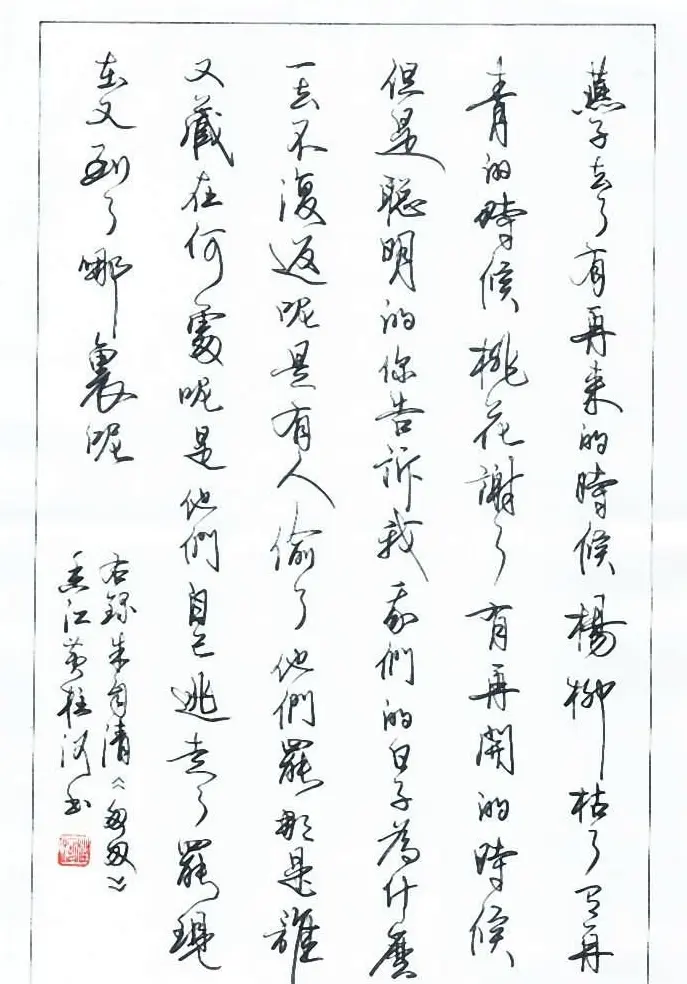 燕子去了有再来的時候楊柳枯了有再
青的時候桃花謝了有再開的時候
但是聰明的你告訴我我們的日子為什麼
一去不復返呢是有人偷了他們罷那是誰
又藏在何處呢是他們自己逃走了罷現
在又到了哪裏呢
右錄朱自清《匆匆》
香江黃柱河書